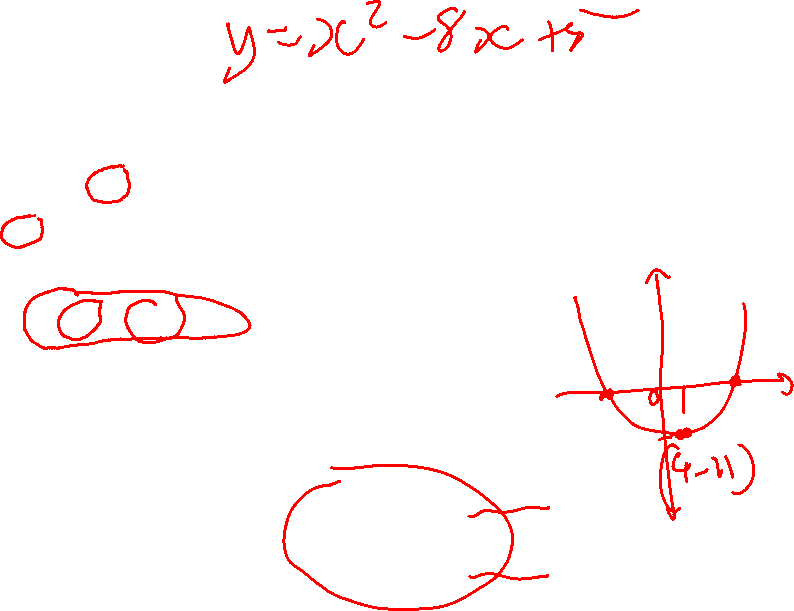 y = x² - 8x + 5
0
(4 - 11)